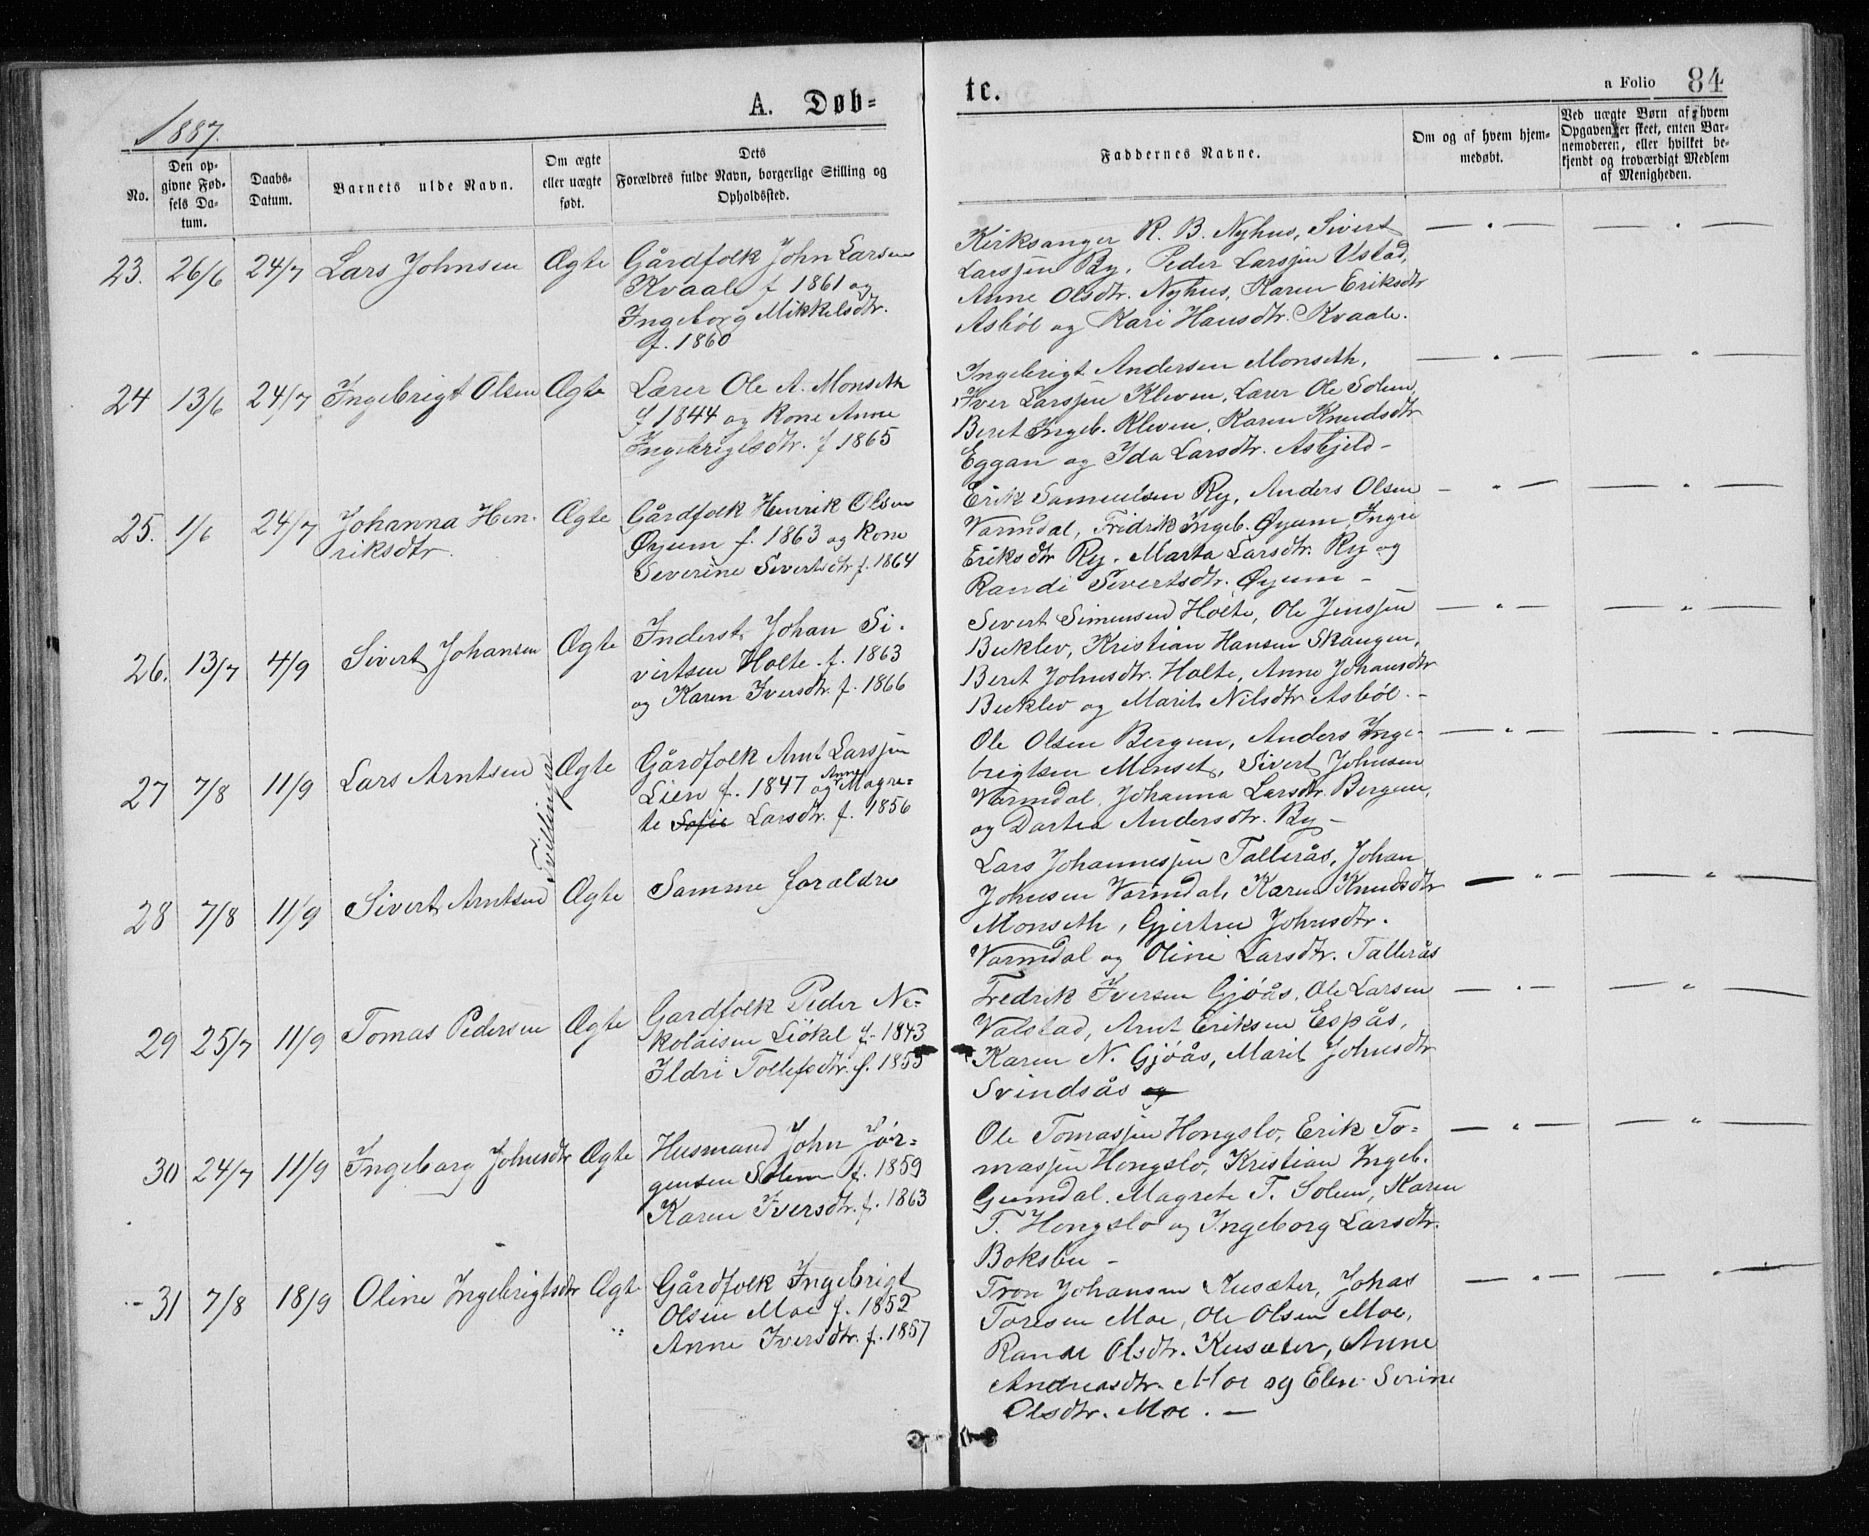 1887.
A. Døb=
te.
a Folio 84
No.
Den op-
givne Fød-
sels Da-
tum.
Daabs-
Datum.
Barnets fulde Navn.
Om ægte
eller uægte
født.
Dets
Forældres fulde Navn, borgerlige Stilling og
Opholdssted.
Faddernes Navne.
Om og af hvem hjem-
medøbt.
Ved uægte Børn af hvem
Opgaven er skeet, enten Bar-
nemoderen, eller hvilket be-
kjendt og troværdigt Medlem
af Menigheden.
23. 26/6 24/7 Lars Johnsen Ægte
Gårdfolk John Larsen
Kvaale f 1861 og
Ingeborg Mikkelsdtr.
f. 1860
Kirksanger R. B. Nyhus, Sivert
Larssen Ry, Peder Larssen Ustad,
Anne Olsdtr. Nyhus, Karen Eriksdtr
Asbøl og Kari Hansdtr. Kvaale.
24 13/6 24/7 Ingebrigt Olsen Ægte
Lærer Ole A. Monseth
f 1844 og Kone Anne
Ingebrigtsdtr. f 1865
Ingebrigt Andersen Monseth,
Iver Larssen Kleven, Lærer Ole Solem,
Beret Ingeb. Kleven, Karen Knudsdtr
Eggan og Ida Larsdtr. Asbjeld -
25. 1/6 24/7 Johanna Hen-
riksdtr.
Ægte
Gårdfolk Henrik Olsen
Øyum f. 1863 og Kone
Severine Sivertsdtr f. 1864
Erik Samuelsen Ry, Anders Olsen
Varmdal, Fridrik Ingeb. Øyum, Ingre
Eriksdtr Ry, Marta Larsdtr. Ry og
Randi Sivertsdtr. Øyum -
26. 13/7 4/9 Sivert Johansen Ægte
Inderst, Johan Si-
vertsen Holte f. 1863
og Karen Iversdtr. f. 1866
Sivert Simensen Holte, Ole Jenssen
Buklev, Kristian Hansen Skaugen,
Beret Johnsdtr. Holte, Anne Johansdtr
Buklev og Marit Nilsdtr Asbøl. -
27 7/8 11/9 Lars Arntsen Ægte
Tvillinger
Gårdfolk Arnt Larssen
Lien f. 1847 og Anne Magre-
te Sofie Larsdtr. f. 1856
Ole Olsen Bergum, Anders Inge-
brigtsen Monset, Sivert Johnsen
Varmdal, Johanna Larsdtr. Bergum,
og Dartea Andersdtr. Ry -
28 7/8 11/9 Sivert Arntsen Ægte
Samme forældre
Lars Johannessen Tallerås, Johan
Johnsen Varmdal, Karen Knudsdtr
Monseth, Gjertru Johnsdtr.
Varmdal og Oline Larsdtr. Tallerås
29 25/7 11/9 Tomas Pedersen Ægte
Gardfolk Peder Ne-
kolaisen Liökel f. 1843
Ildri Tollefsdtr. f. 1855
Fredrik Iversen Gjøås, Ole Larsen
Valstad, Arnt Eriksen Espås,
Karen N. Gjøås, Marit Johnsdtr
Svindsås og
30 24/7 11/9 Ingeborg Johnsdtr Ægte
Husmand John Jör-
gensen Solem f. 1859
Karen Iversdtr. f. 1863
Ole Tomassen Hongslo, Erik To-
massen Hongslo, Kristian Ingeb.
Grindal, Magrete T. Solem, Karen
T. Hongslo og Ingeborg Larsdtr.
Boksbu -
31 7/8 18/9 Oline Ingebrigtsdtr Ægte
Gårdfolk Ingebrigt
Olsen Moe f. 1852
Anne Iversdtr. f. 1857
Tron Johansen Kusæter, Johas
Toresen Moe, Ole Olsen Moe,
Randi Olsdtr. Kusæter, Anne
Andreasdtr. Moe og Elen Serine
Olsdtr. Moe. -